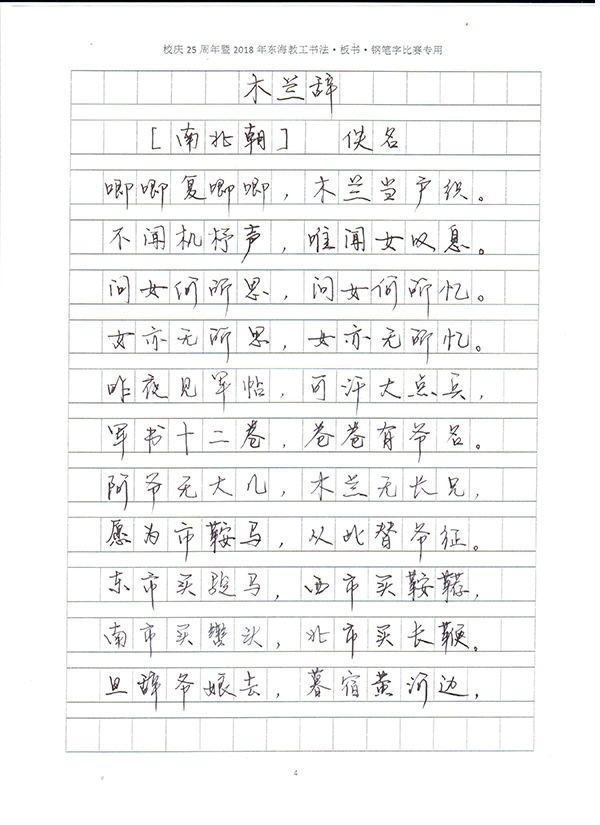 校庆 25 周年暨 2018 年东海教工书法·板书·钢笔字比赛专用
木兰辞
[南北朝] 佚名
唧唧复唧唧，木兰当户织。
不闻机杼声，唯闻女叹息。
问女何所思，问女何所忆。
女亦无所思，女亦无所忆。
昨夜见军帖，可汗大点兵，
军书十二卷，卷卷有爷名。
阿爷无大儿，木兰无长兄，
愿为市鞍马，从此替爷征。
东市买骏马，西市买鞍鞯，
南市买辔头，北市买长鞭。
旦辞爷娘去，暮宿黄河边，
4